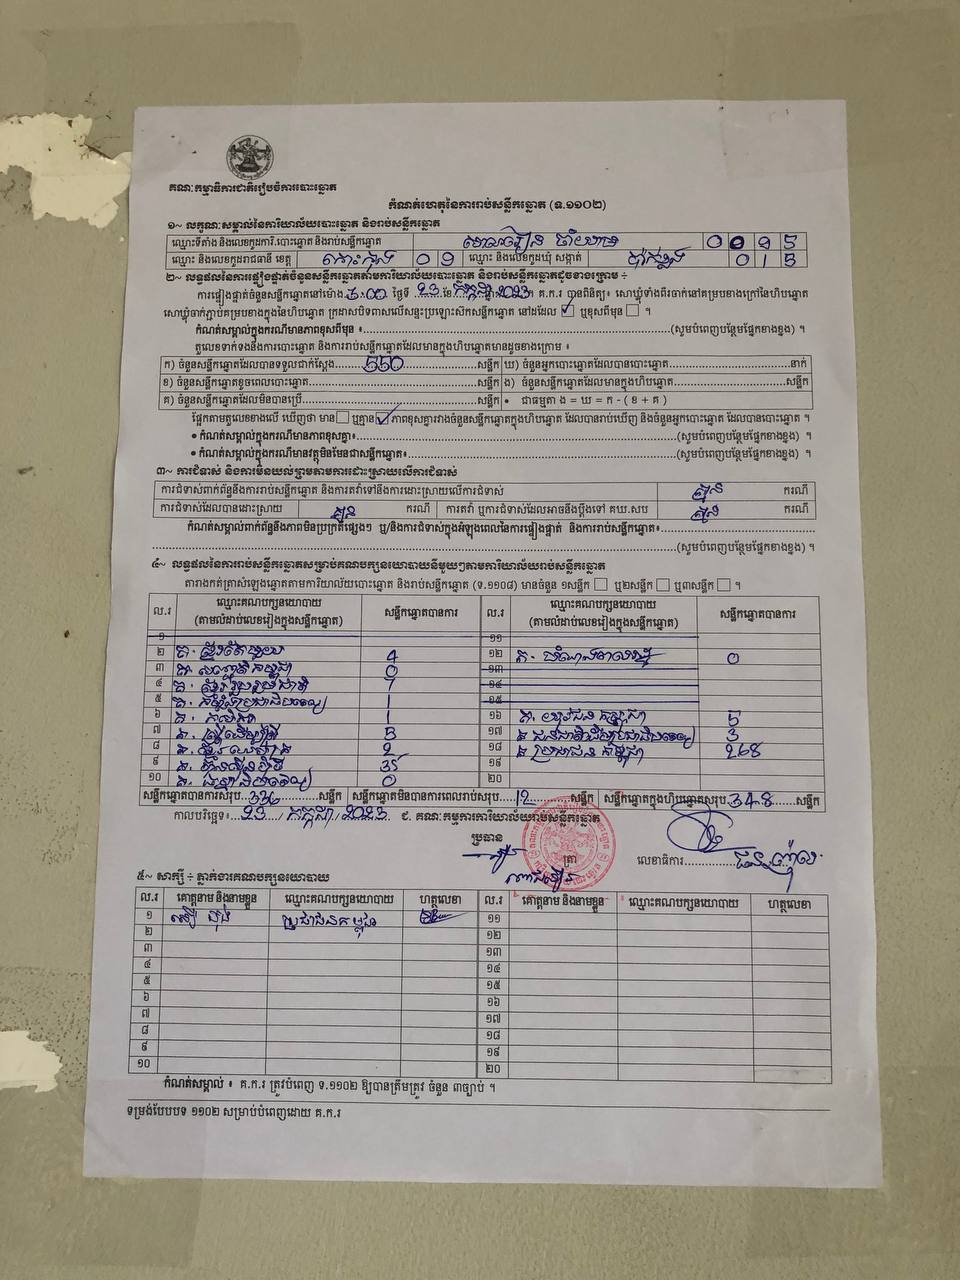 គណៈកម្មាធិការជាតិរៀបចំការបោះឆ្នោត
កំណត់ហេតុនៃការរាប់សន្លឹកឆ្នោត (ទ.១១០២)
១~ លក្ខណៈសម្គាល់នៃការិយាល័យបោះឆ្នោត និងរាប់សន្លឹកឆ្នោត
ឈ្មោះទីតាំង និងលេខកូដការិ.បោះឆ្នោត និងរាប់សន្លឹកឆ្នោត 0095
ឈ្មោះ និងលេខកូដរាជធានី ខេត្ត កោះកុង 09 ឈ្មោះ និងលេខកូដឃុំ សង្កាត់ ប៉ាក់ខ្លង 015
២~ លទ្ធផលនៃការផ្ទៀងផ្ទាត់ចំនួនសន្លឹកឆ្នោតតាមការិយាល័យបោះឆ្នោត និងរាប់សន្លឹកឆ្នោតដូចខាងក្រោម ÷
ការផ្ទៀងផ្ទាត់ចំនួនសន្លឹកឆ្នោតនៅម៉ោង 3:00 ថ្ងៃទី 23 ខែ កក្កដា ឆ្នាំ 2023។ គ.ក.រ បានពិនិត្យ៖ សោឃ្លុំទាំងពីរចាក់នៅគម្របខាងក្រៅនៃហិបឆ្នោត
សោឃ្លុំចាក់ភ្ជាប់គម្របខាងក្នុងនៃហិបឆ្នោត ក្រដាសបិទពាសលើសន្ទះប្រឡោះស៊កសន្លឹកឆ្នោត នៅដដែល ☑ ឬខុសពីមុន ☐ ។
កំណត់សម្គាល់ក្នុងករណីមានភាពខុសពីមុន ៖ (សូមបំពេញបន្ថែមផ្នែកខាងខ្នង) ។
តួលេខទាក់ទងនឹងការបោះឆ្នោត និងការរាប់សន្លឹកឆ្នោតដែលមានក្នុងហិបឆ្នោតមានដូចខាងក្រោម ៖
ក) ចំនួនសន្លឹកឆ្នោតដែលបានទទួលជាក់ស្តែង 550 សន្លឹក ឃ) ចំនួនអ្នកបោះឆ្នោតដែលបានបោះឆ្នោត នាក់
ខ) ចំនួនសន្លឹកឆ្នោតខូចពេលបោះឆ្នោត សន្លឹក ង) ចំនួនសន្លឹកឆ្នោតដែលមានក្នុងហិបឆ្នោត សន្លឹក
គ) ចំនួនសន្លឹកឆ្នោតដែលមិនបានប្រើ សន្លឹក • ជាធម្មតា ង = ឃ = ក - ( ខ + គ )
ផ្អែកតាមតួលេខខាងលើ ឃើញថា មាន ☐ ឬគ្មាន ☑ ភាពខុសគ្នារវាងចំនួនសន្លឹកឆ្នោតក្នុងហិបឆ្នោត ដែលបានរាប់ឃើញ និងចំនួនអ្នកបោះឆ្នោត ដែលបានបោះឆ្នោត ។
• កំណត់សម្គាល់ក្នុងករណីមានភាពខុសគ្នា៖ (សូមបំពេញបន្ថែមផ្នែកខាងខ្នង) ។
• កំណត់សម្គាល់ក្នុងករណីមានវត្ថុមិនមែនជាសន្លឹកឆ្នោត៖ (សូមបំពេញបន្ថែមផ្នែកខាងខ្នង) ។
៣~ ការជំទាស់ និងការមិនយល់ព្រមតាមការដោះស្រាយលើការជំទាស់
ការជំទាស់ពាក់ព័ន្ធនឹងការរាប់សន្លឹកឆ្នោត និងការតវ៉ាទៅនឹងការដោះស្រាយលើការជំទាស់ គ្មាន ករណី
ការជំទាស់ដែលបានដោះស្រាយ គ្មាន ករណី ការតវ៉ា ឬការជំទាស់ដែលអាចនឹងប្ដឹងទៅ គឃ.សប គ្មាន ករណី
កំណត់សម្គាល់ពាក់ព័ន្ធនឹងភាពមិនប្រក្រតីផ្សេងៗ ឬ/និងការជំទាស់ក្នុងអំឡុងពេលនៃការផ្ទៀងផ្ទាត់ និងការរាប់សន្លឹកឆ្នោត៖
(សូមបំពេញបន្ថែមផ្នែកខាងខ្នង) ។
៤~ លទ្ធផលនៃការរាប់សន្លឹកឆ្នោតសម្រាប់គណបក្សនយោបាយនីមួយៗតាមការិយាល័យរាប់សន្លឹកឆ្នោត
តារាងកត់ត្រាសំឡេងឆ្នោតតាមការិយាល័យបោះឆ្នោត និងរាប់សន្លឹកឆ្នោត (ទ.១១០៨) មានចំនួន ១សន្លឹក ☐ ឬ២សន្លឹក ☐ ឬ៣សន្លឹក ☐ ។
ល.រ ឈ្មោះគណបក្សនយោបាយ (តាមលំដាប់លេខរៀងក្នុងសន្លឹកឆ្នោត) សន្លឹកឆ្នោតបានការ ល.រ ឈ្មោះគណបក្សនយោបាយ (តាមលំដាប់លេខរៀងក្នុងសន្លឹកឆ្នោត) សន្លឹកឆ្នោតបានការ
១ ១១
២ គ. ឃ្មុំ 4 ១២ គ. 0
៣ គ. កម្ពុជា 0 ១៣
៤ គ. ខ្មែររួបរួមជាតិ 7 ១៤
៥ គ. 1 ១៥
៦ គ. កសិករ 1 ១៦ គ. យុវជន កម្ពុជា 5
៧ គ. 5 ១៧ គ ជនជាតិដើមប្រជាធិបតេយ្យ 3
៨ គ. 2 ១៨ គ ប្រជាជន កម្ពុជា 268
៩ គ. ហ៊្វុនស៊ិនប៉ិច 35 ១៩
១០ គ. ធម្មាធិបតេយ្យ 0 ២០
សន្លឹកឆ្នោតបានការសរុប 336 សន្លឹក សន្លឹកឆ្នោតមិនបានការពេលរាប់សរុប 12 សន្លឹក សន្លឹកឆ្នោតក្នុងហិបឆ្នោតសរុប 348 សន្លឹក
កាលបរិច្ឆេទ៖ 23 / កក្កដា / 2023 ជ. គណៈកម្មការការិយាល័យរាប់សន្លឹកឆ្នោត
ប្រធាន
ត្រា លេខាធិការ
៥~ សាក្សី ÷ ភ្នាក់ងារគណបក្សនយោបាយ
ល.រ គោត្តនាម និងនាមខ្លួន ឈ្មោះគណបក្សនយោបាយ ហត្ថលេខា ល.រ គោត្តនាម និងនាមខ្លួន ឈ្មោះគណបក្សនយោបាយ ហត្ថលេខា
១ ប្រជាជនកម្ពុជា ១១
២ ១២
៣ ១៣
៤ ១៤
៥ ១៥
៦ ១៦
៧ ១៧
៨ ១៨
៩ ១៩
១០ ២០
កំណត់សម្គាល់ ៖ គ.ក.រ ត្រូវបំពេញ ទ.១១០២ ឱ្យបានត្រឹមត្រូវ ចំនួន ៣ច្បាប់ ។
ទម្រង់បែបបទ ១១០២ សម្រាប់បំពេញដោយ គ.ក.រ